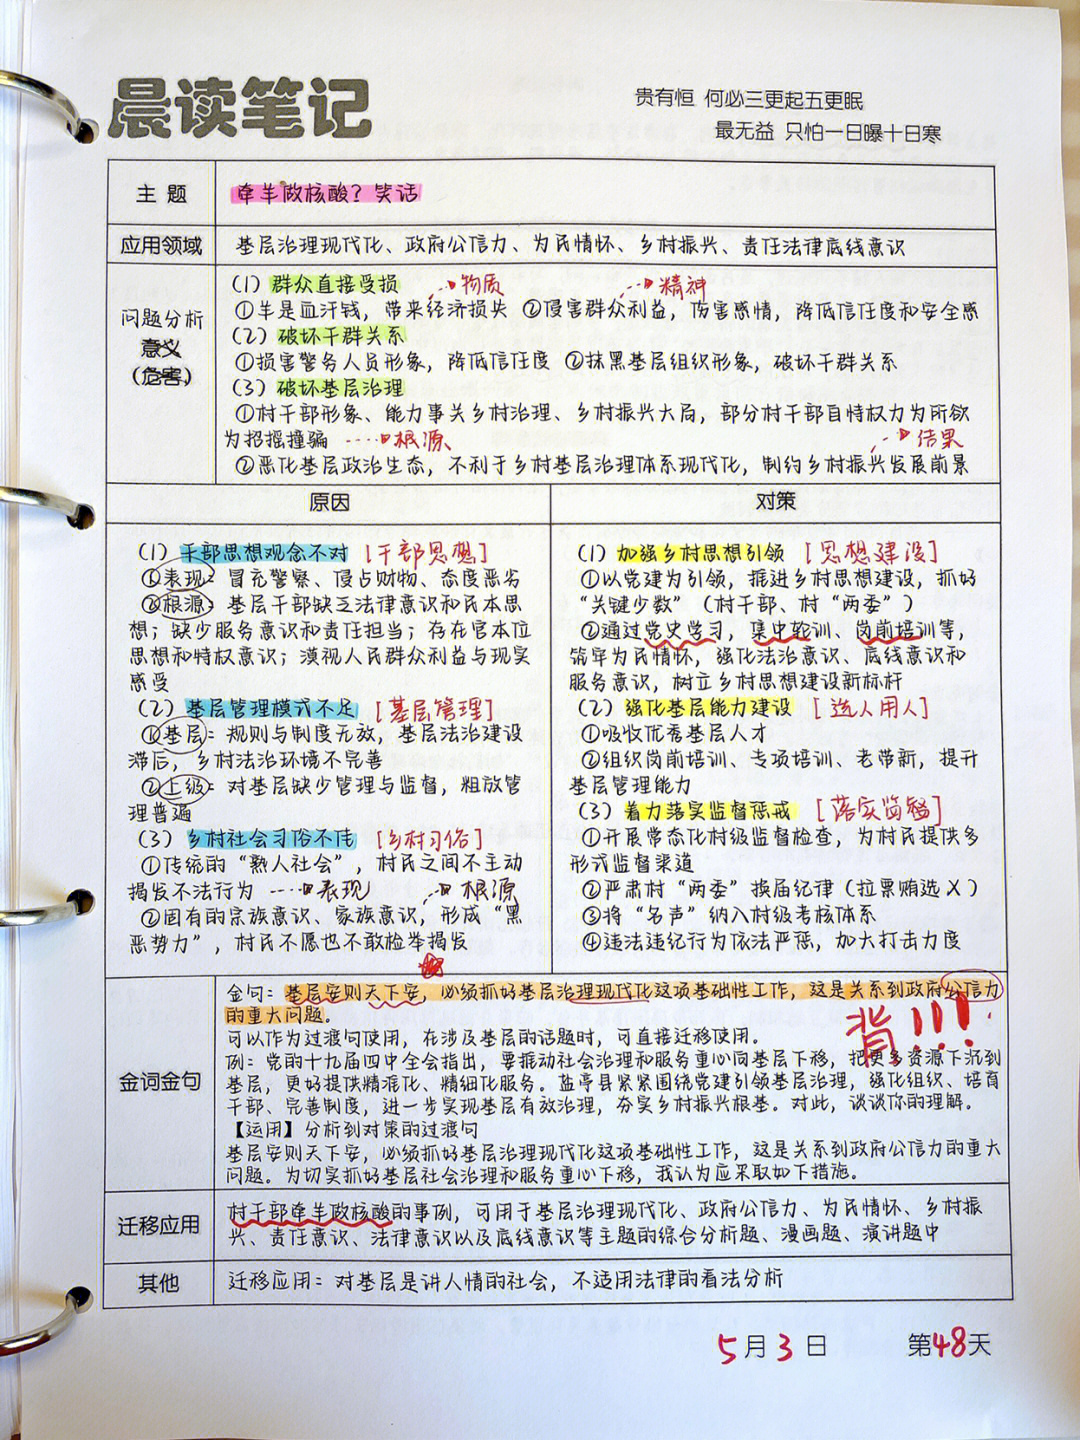 晨读笔记
贵有恒 何必三更起五更眠
最无益 只怕一日曝十日寒
主题
牵羊做核酸？笑话
应用领域
基层治理现代化、政府公信力、为民情怀、乡村振兴、责任法律底线意识
问题分析
意义
（危害）
（1）群众直接受损 物质 精神
①羊是血汗钱，带来经济损失 ②侵害群众利益，伤害感情，降低信任度和安全感
（2）破坏干群关系
①损害警务人员形象，降低信任度 ②抹黑基层组织形象，破坏干群关系
（3）破坏基层治理
①村干部形象、能力事关乡村治理、乡村振兴大局，部分村干部自恃权力为所欲
为招摇撞骗 根源 结果
②恶化基层政治生态，不利于乡村基层治理体系现代化，制约乡村振兴发展前景
原因
（1）干部思想观念不对 [干部思想]
①表现：冒充警察、侵占财物、态度恶劣
②根源：基层干部缺乏法律意识和民本思
想；缺少服务意识和责任担当；存在官本位
思想和特权意识；漠视人民群众利益与现实
感受
（2）基层管理模式不足 [基层管理]
①基层：规则与制度无放，基层法治建设
滞后，乡村法治环境不完善
②上级：对基层缺少管理与监督，粗放管
理普遍
（3）乡村社会习俗不佳 [乡村习俗]
①传统的“熟人社会”，村民之间不主动
揭发不法行为 表现 根源
②固有的宗族意识、家族意识，形成“黑
恶势力”，村民不愿也不敢检举揭发
对策
（1）加强乡村思想引领 [思想建设]
①以党建为引领，推进乡村思想建设，抓好
“关键少数”（村干部、村“两委”）
②通过党史学习，集中轮训、岗前培训等，
筑牢为民情怀，强化法治意识、底线意识和
服务意识，树立乡村思想建设新标杆
（2）强化基层能力建设 [选人用人]
①吸收优秀基层人才
②组织岗前培训、专项培训、老带新，提升
基层管理能力
（3）着力落实监督惩戒 [落实监督]
①开展常态化村级监督检查，为村民提供多
形式监督渠道
②严肃村“两委”换届纪律（拉票贿选X）
③将“名声”纳入村级考核体系
④违法违纪行为依法严惩，加大打击力度
金词金句
金句：基层安则天下安，必须抓好基层治理现代化这项基础性工作，这是关系到政府公信力
的重大问题。
背!!!
可以作为过渡句使用，在涉及基层的话题时，可直接迁移使用。
例：党的十九届四中全会指出，要推动社会治理和服务重心向基层下移，把更多资源下沉到
基层，更好提供精准化、精细化服务。盐亭县紧紧围绕党建引领基层治理，强化组织、培育
干部、完善制度，进一步实现基层有效治理，夯实乡村振兴根基。对此，谈谈你的理解。
【运用】分析到对策的过渡句
基层安则天下安，必须抓好基层治理现代化这项基础性工作，这是关系到政府公信力的重大
问题。为切实抓好基层社会治理和服务重心下移，我认为应采取如下措施。
迁移应用
村干部牵羊做核酸的事例，可用于基层治理现代化、政府公信力、为民情怀、乡村振
兴、责任意识、法律意识以及底线意识等主题的综合分析题、漫画题、演讲题中
其他
迁移应用：对基层是讲人情的社会，不适用法律的看法分析
5月3日 第48天